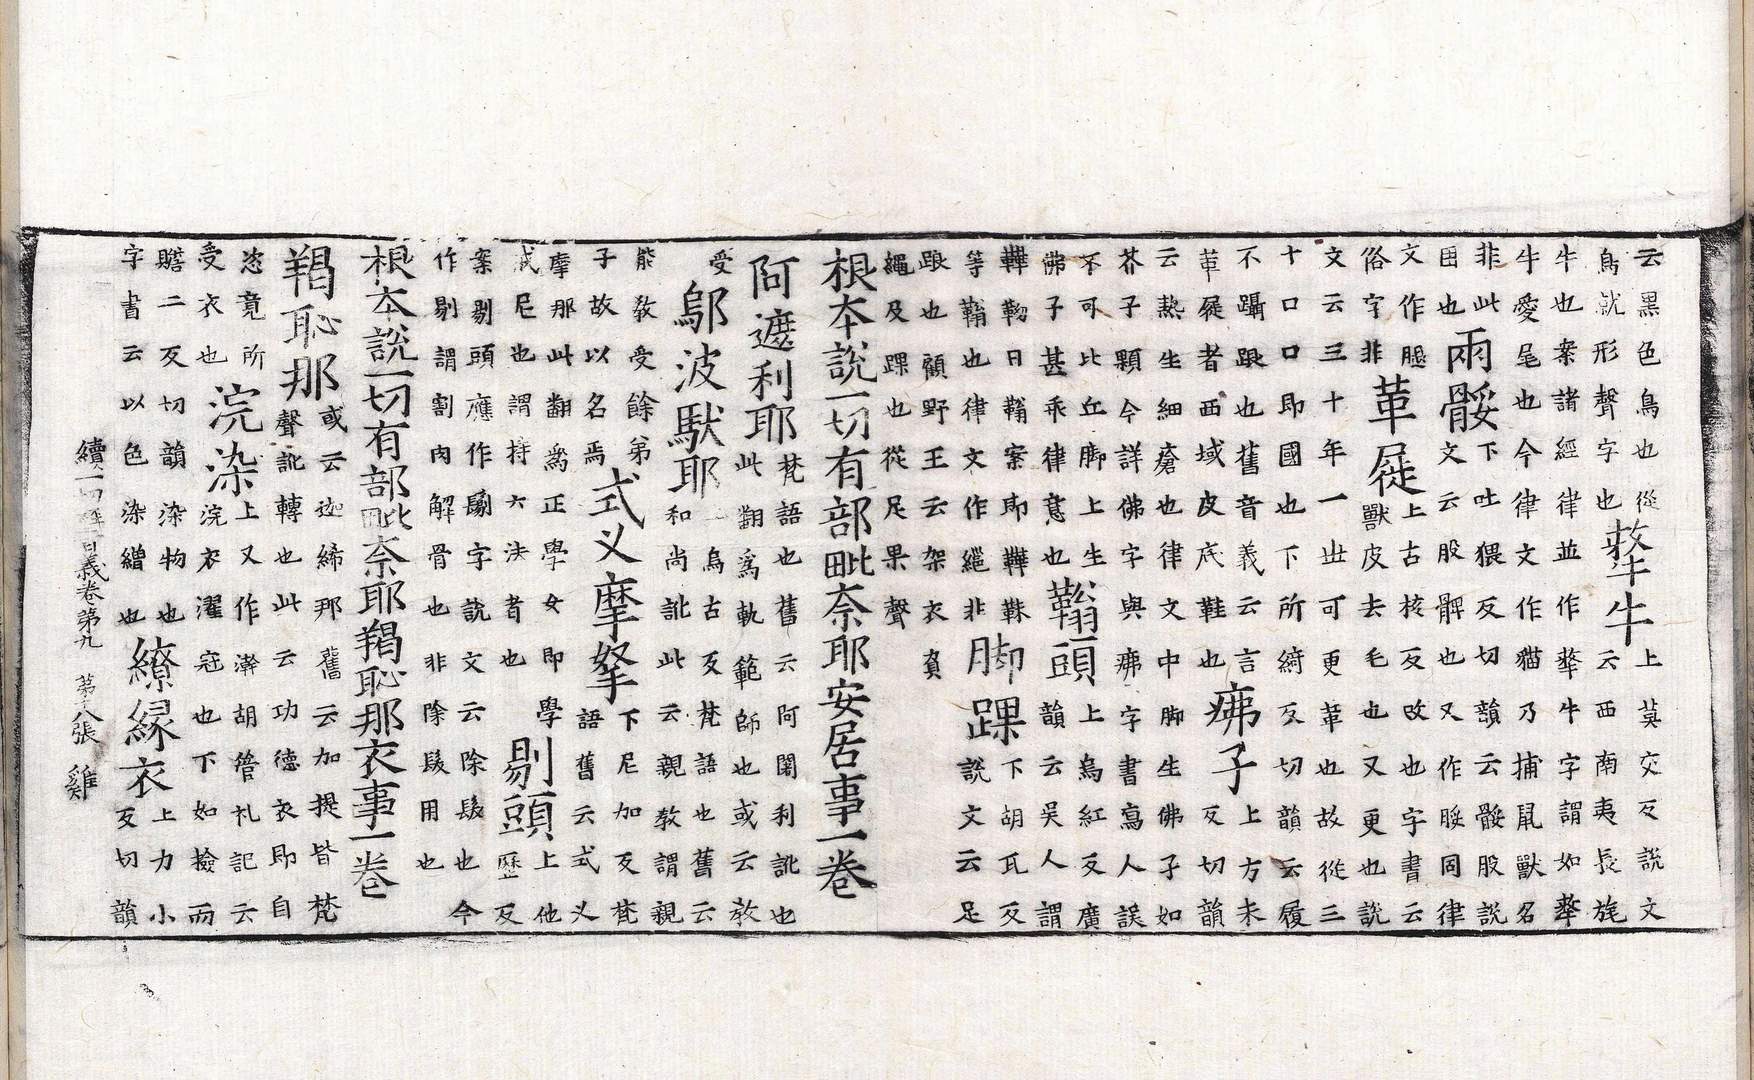 云黑色鳥也從
鳥就形聲字也
犛牛
上莫交反說文
云西南夷長旄
牛也案諸經律並作犛牛字謂如犛
牛愛尾也今律文作猫乃捕鼠獸名
非此
田也
兩骽
下吐猥反切韻云骽股說
文云股髀也又作腿同律
文作腿
俗字非
革屣
上古核反改也字書云
獸皮去毛也又更也說
文云三十年一世可更革也故從三
十口口即國也下所綺反切韻云履
不躡跟也舊音義云言
革屣者西域皮底鞋也
疿子
上方未
反切韻
云熱生細瘡也律文中脚生佛子如
芥子顆今詳佛字與疿字書寫人誤
不可比丘脚上生
佛子甚乖律意也
䩺頭
上烏紅反廣
韻云吳人謂
鞾靿曰䩺案即鞾靺
等䩺也律文作非
脚踝
下胡瓦反
說文云足
跟也顧野王云架衣
繩及踝也從足果聲
根本說一切有部毗奈耶安居事一卷
阿遮利耶
梵語也舊云阿闍利訛也
此翻爲軌範師也或云教
受
鄔波馱耶
上烏古反梵語也舊云
和尚訛此云親教謂親
能教受餘弟
子故以名焉
式义摩拏
下尼加反梵
語舊云式义
摩那此翻爲正學女即學
戒尼也謂持六法者也
剔頭
上他
歷反
案剔頭應作鬀字說文云除髮也今
作剔謂割肉解骨也非除髮用也
根本說一切有部毗奈耶羯恥那衣事一卷
羯恥那
或云迦絺那舊云加提皆梵
聲訛轉也此云功德衣即自
恣竟所
受衣也
浣染
上又作澣胡管礼記云
浣衣濯冠也下如撿而
贍二反切韻染物也
字書云以色染繒也
繚緣衣
上力小
反切韻
續一切經音義卷第九　第十八張　雞